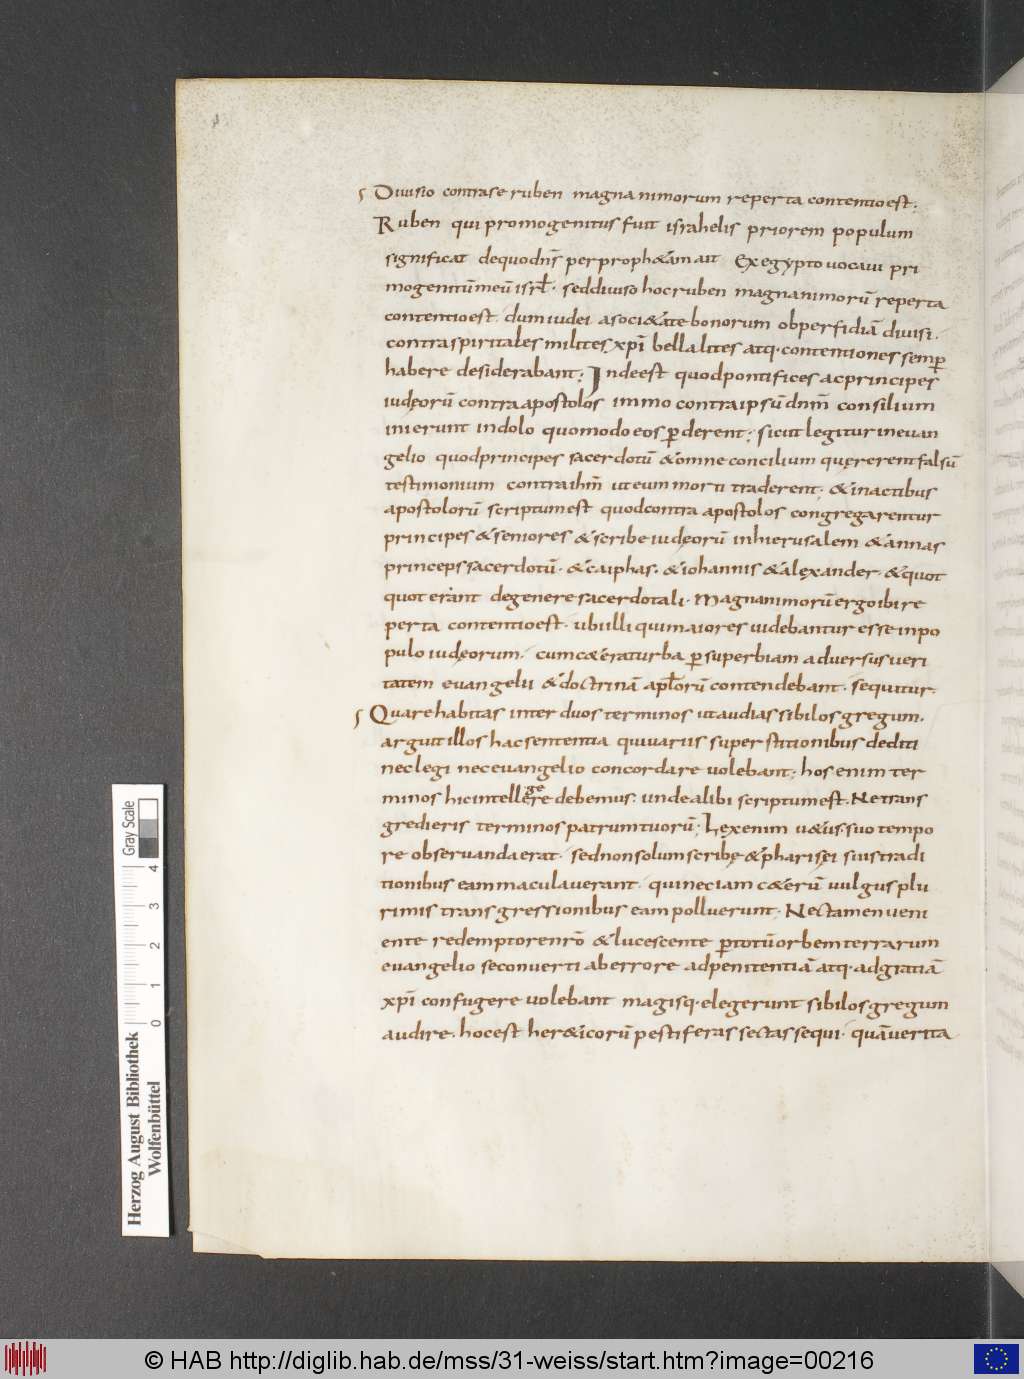 Diuisio contra se ruben magnanimorum reperta contentio est;
Ruben qui promogenitus fuit israhelis priorem populum
significat de quo dn̄s per proph&am ait Ex egypto uocaui pri
mogenitū meū isrl̄. sed diuiso hoc ruben magnanimorū reperta
contentio est. dum iudei a soci&ate bonorum ob perfidiā diuisi.
contra spiritales milites xpī bella lites atq. contentiones semp̄
habere desiderabant; Inde est quod pontifices ac principes
iudęorū contra apostolos immo contra ipsū dnm̄ consilium
inierunt in dolo quomodo eos p̱derent; sicut legitur in euan
gelio quod principes sacerdotū & omne concilium quęrerent falsū
testimonium contra ihm̄ ut eum morti traderent; & in actibus
apostolorū scriptum est quod contra apostolos congregarentur
principes & seniores & scribe iudęorū in hierusalem & annas
princeps sacerdotū. & caiphas. & iohannis & alęxander. & quot
quot erant de genere sacerdotali. Magnanimorū ergo ibi re
perta contentio est. ubi illi qui maiores uidebantur esse in po
pulo iudęorum. cum c&era turba p̱ superbiam aduersus ueri
tatem euangelii & doctrinā apl̄orū contendebant. sequitur.
Quare habitas inter duos terminos ut audias sibilos gregum.
arguit illos hac sententia qui uariis superstitionibus dediti
nec legi nec euangelio concordare uolebant; hos enim ter
minos hic intellegere debemus. unde alibi scriptum est. Ne trans
gredieris terminos patrum tuorū; Lęx enim u&us. suo tempo
re obseruanda erat. sed non solum scribę & pharisęi suis tradi
tionibus eam maculauerant. quin eciam c&erū uulgus plu
rimis transgressionibus eam polluerunt. Nec tamen ueni
ente redemptore nrō & lucescente p̱ totū orbem terrarum
euangelio se conuerti ab errore ad penitentiā atq. ad gratiā
xpī confugere uolebant magisq. elegerunt sibilos gregum
audire. hoc est her&icorū pestiferas sectas sequi. quā uerita
Herzog August Bibliothek
Wolfenbüttel
0 1 2 3 4
Gray Scale
© HAB http://diglib.hab.de/mss/31-weiss/start.htm?image=00216